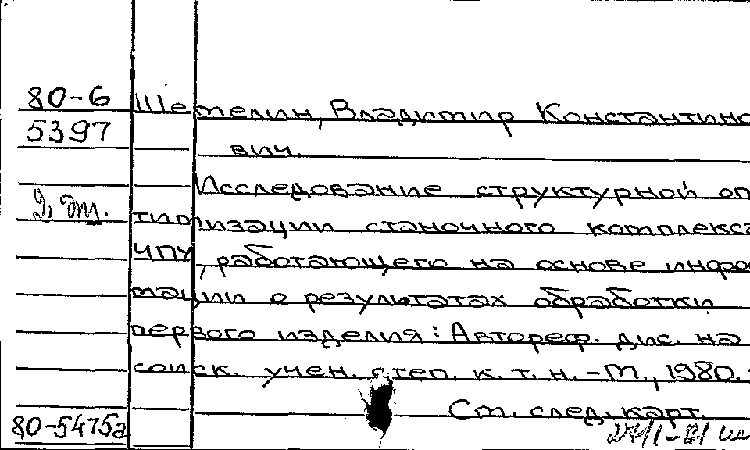 80-6
5397
Шемелин, Владимир Константино
вич.
Исследование структурной оп
тимизации станочного комплекса
ЧПУ, работающего на основе инфор
мации о результатах обработки
первого изделия: Автореф. дис. на
соиск. учен. степ. к. т. н. -М., 1980.
См. след. карт.
80-5475а